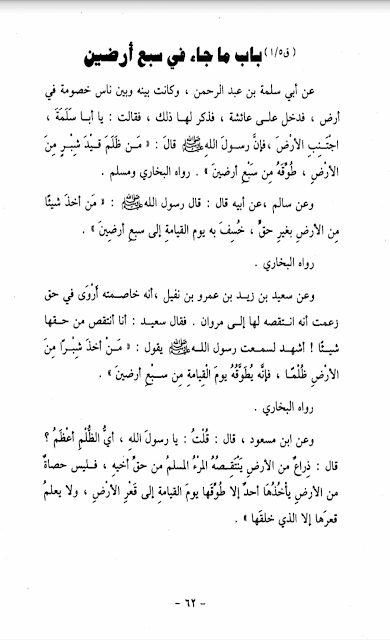 (ق١/٥) باب ما جاء في سبع أرضين
عن أبي سلمة بن عبد الرحمن ، وكانت بينه وبين ناس خصومة في
أرض ، فدخل على عائشة ، فذكر لها ذلك ، فقالت : يا أبا سَلَمَةَ ،
اجْتَنِبِ الأرْضَ ، فإنَّ رسولَ اللهِ ﷺ قالَ : « مَـن ظَلَمَ قِيدَ شِبْرٍ مِنَ
الأرْضِ ، طُوِّقَهُ مِن سَبْعِ أرضينَ » . رواه البخاري ومسلم .
وعن سالم ، عن أبيه قال : قال رسول الله ﷺ : « مَن أخذَ شيئًا
مِن الأرضِ بغيرِ حقٍّ ، خُسِفَ به يوم القيامةِ إلى سبعِ أرضينَ » .
رواه البخاري .
وعن سعيد بن زيد بن عمرو بن نفيل ، أنه خاصمته أرْوَى في حق
زعمت أنه انتقصه لها إلى مروان . فقال سعيد : أنا أنتقص من حقها
شيئًا ! أشهد لسمعت رسول الله ﷺ يقول : « مَـنْ أخذَ شِبْرًا مِنَ
الأرْضِ ظُلْمًا ، فإنَّه يُطَوَّقُهُ يومَ القِيامةِ مِن سَبْعِ أرضينَ » .
رواه البخاري .
وعن ابن مسعود ، قال : قُلْتُ : يا رسولَ اللهِ ، أيُّ الظُّلْمِ أعْظَمُ ؟
قال : ذِراعٌ من الأرضِ يَنْتَقِصُهُ المرْءُ المسلمُ من حقِّ أخيهِ ، فليس حصاةٌ
من الأرضِ يأخُذُها أحدٌ إلا طُوِّقَها يومَ القيامةِ إلى قَعْرِ الأرْضِ ، ولا يعلمُ
قعرَها إلا الذي خلقَها » .
- ٦٢ -